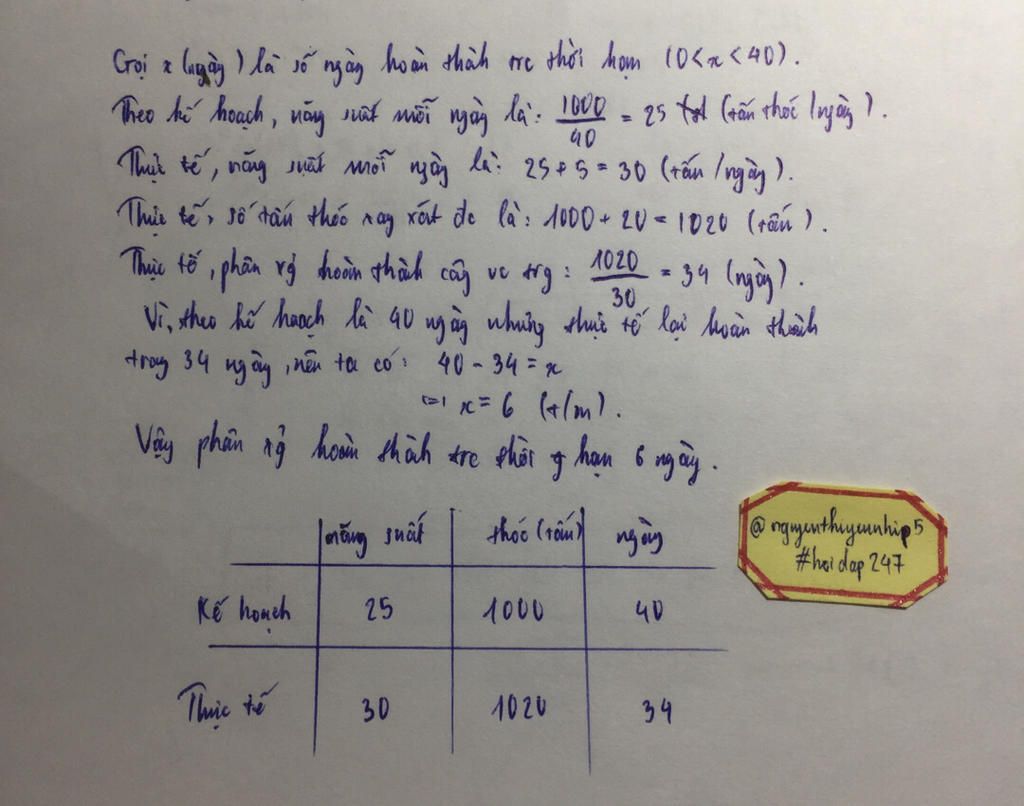 Gọi x (ngày) là số ngày hoàn thành trc thời hạn (0<x<40).
Theo kế hoạch, năng suất mỗi ngày là: 1000/40 = 25 (tấn thóc/ngày).
Thực tế, năng suất mỗi ngày là: 25+5=30 (tấn/ngày).
Thực tế, số tấn thóc xay xát đc là: 1000+20=1020 (tấn).
Thực tế, phân xg̉ hoàn thành công vc trg: 1020/30 = 34 (ngày).
Vì, theo kế hoạch là 40 ngày nhưng thực tế lại hoàn thành
trong 34 ngày, nên ta có: 40-34=x
x=6 (t/m).
Vậy phân xg̉ hoàn thành trc thời hạn 6 ngày.
năng suất thóc (tấn) ngày
Kế hoạch 25 1000 40
Thực tế 30 1020 34
@nguyenthiyennhip5
#hoidap247